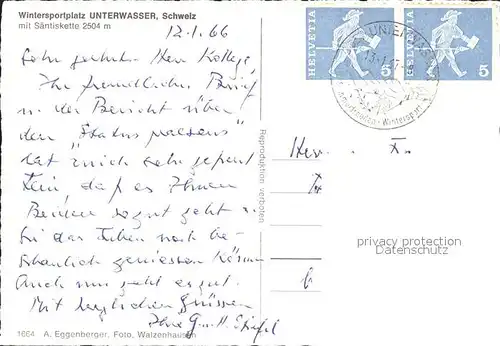 Wintersportplatz UNTERWASSER, Schweiz
mit Säntiskette 2504 m
12.1.66
Sehr geehrter Herr Kollege,
Ihr freundlicher Brief
u. der Bericht über
den "Status praesens"
hat mich sehr gefreut
Fein, daß es Ihnen
Beiden so gut geht u.
Sie das Leben noch be-
schaulich geniessen können
Auch uns geht es gut.
Mit herzlichen Grüssen
Ihre G. u. H.
1664 A. Eggenberger, Foto, Walzenhausen
Reproduktion verboten
HELVETIA 5
HELVETIA 5
UNTERWASSER
Wintersport
Herr
privacy protection
Datenschutz